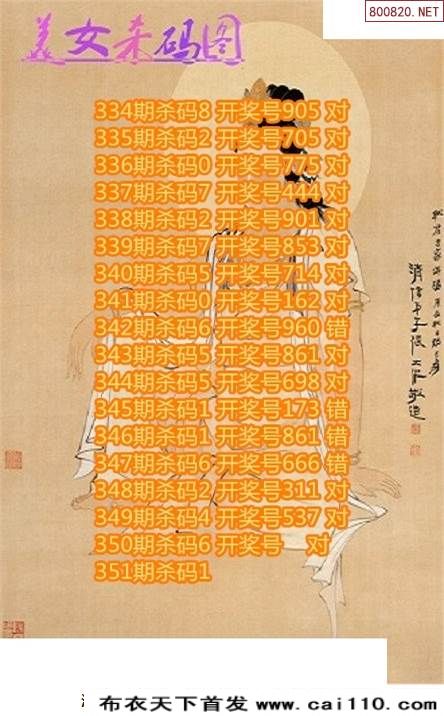 800820.NET
美女杀码图
334期杀码8 开奖号905 对
335期杀码2 开奖号705 对
336期杀码0 开奖号775 对
337期杀码7 开奖号444 对
338期杀码2 开奖号901 对
339期杀码7 开奖号853 对
340期杀码5 开奖号714 对
341期杀码0 开奖号162 对
342期杀码6 开奖号960 错
343期杀码5 开奖号861 对
344期杀码5 开奖号698 对
345期杀码1 开奖号173 错
346期杀码1 开奖号861 错
347期杀码6 开奖号666 错
348期杀码2 开奖号311 对
349期杀码4 开奖号537 对
350期杀码6 开奖号 对
351期杀码1
布衣天下首发 www.cai110.com